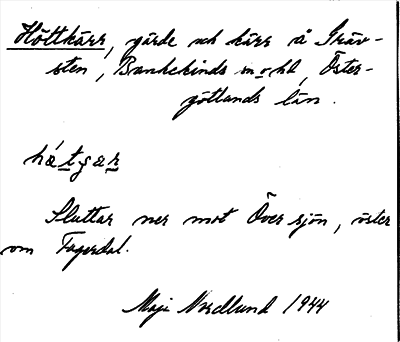 Höttkärr, gärde och kärr å Gräv-
sten, Bankekinds sn o hd, Öster-
götlands län.
hǽtꞬaꞦ
Sluttar ner mot Översjön, öster
om Fagerdal.
Maji Nordlund 1944